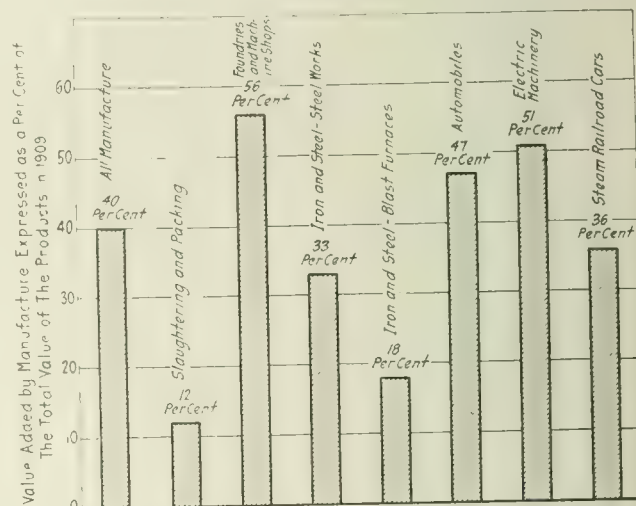 Value Added by Manufacture Expressed as a Per Cent of
The Total Value of The Products in 1909
60
50
40
30
20
10
0
All Manufacture
40
Per Cent
Slaughtering and Packing
12
Per Cent
Foundries
and Mach-
ine Shops.
56
Per Cent
Iron and Steel-Steel Works
33
Per Cent
Iron and Steel-Blast Furnaces
18
Per Cent
Automobiles
47
Per Cent
Electric
Machinery
51
Per Cent
Steam Railroad Cars
36
Per Cent